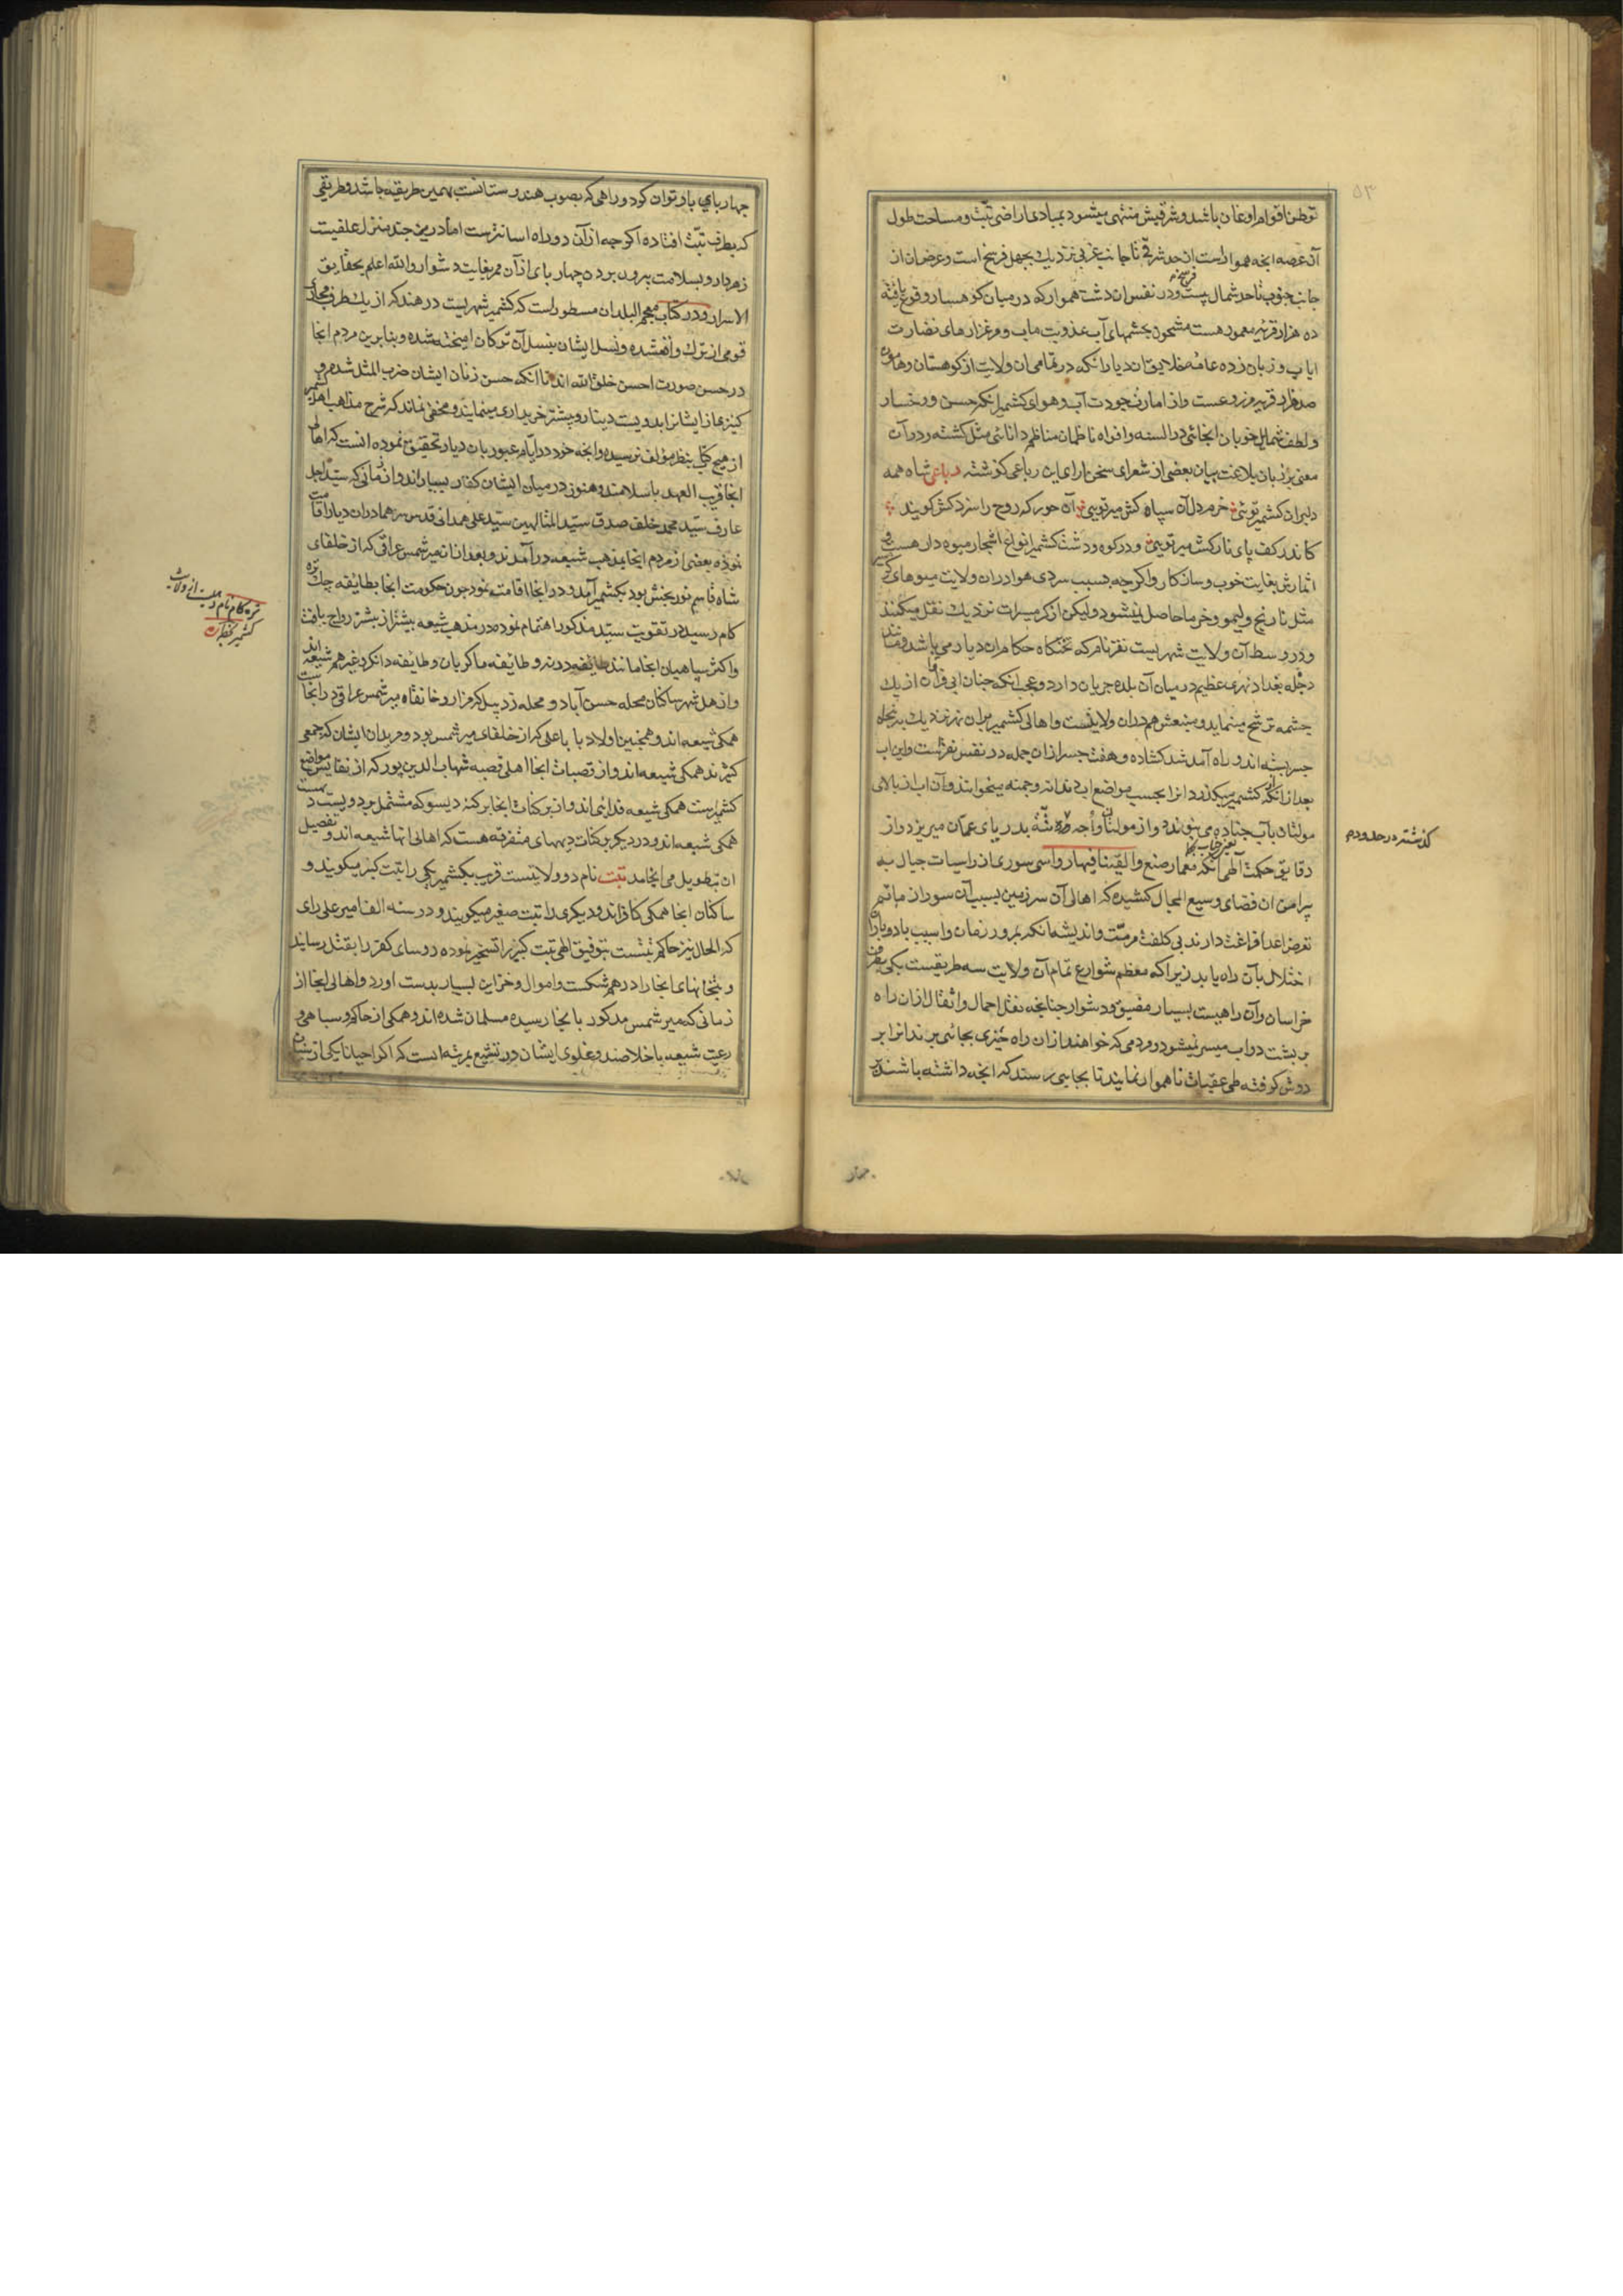 ۵۳
توطن اقوام اوغان باشد و شرقیش منتهی میشود بمبادی اراضی تبت و مساحت طول
آن عرصه آنچه هموار است از حد شرقی تا جانب غربی نزدیک بچهل فرسخ است و عرض آن از
جانب جنوب تا حد شمال بیست فرسخ و در نفس ان دشت هموار که در میان کوهسار وقوع یافته
ده هزار قریه معمور هست مشحون بچشمهای آب عذوبت ماب و مرغزارهای نضارت
ایاب و زبان زده عامهٔ خلایق ان دیار انکه در تمامی ان ولایت از کوهستان و هامون
صد هزار قریه مزروعست و از امارت جودت آب و هوای کشمیر انکه حسن و رخسار
و لطف شمایل خوبان انجائی در السنه و افواه ناظمان مناظم دانائی مثل کشته و در آن
معنی بر زبان بلاغت بیان بعضی از شعرای سخن ارای این رباعی گوشته رباعی شاه همه
دلبران کشمیر توئی خرم دل آن سپاه کش میر تویی آن حور که روح را سزد کش کویند
کاندر کف پای نازکش میر تویی و در کوه و دشت کشمیر انواع اشجار میوه دار هست و
اثمارش بغایت خوب و سازکار و اکرچه بسبب سردی هوا در ان ولایت میوهای گرمسیر
مثل نارنج و لیمو و خرما حاصل نمیشود و لیکن از کرمسیرات نزدیک نقل میکنند
و در وسط آن ولایت شهریست نغز نام که تختکاه حکام ان دیار می باشد و مانند
دجله بغداد نهری عظیم در میان آن بلده جریان دارد و عجب انکه چنان ابی فراوان از یک
چشمه ترشح مینماید و منبعش هم دران ولایتست و اهالی کشمیر بر ان نهر نزدیک به پنجاه
جسر بسته اند و راه آمد شد کشاده و هفت جسر از ان جمله در نفس نغزست و این اب
بعد از انکه از کشمیر میکذرد انرا بحسب مواضع اب دندانه و جمنه میخوانند و آن اب از بالای
مولتان بآب چناده می پیوندد و از مولتان و اُجه و تته بدریای عمان میریزد و از
دقایق حکمت الهی انکه معمار صنع والقینا فیها رواسی سوری از راسیات جبال به
پیرامن ان فضای وسیع المجال کشیده که اهالی آن سرزمین بسبب آن سور از ماتم
تعرض اعدا فراغت دارند بی کلفت مرمت و اندیشه انکه بمرور زمان و اسیب باد و باران
اختلال بآن راه یابد زیرا که معظم شوارع تمام آن ولایت سه طریقست یکی بطرف
خراسان و آن راهیست بسیار مضیق و دشوار چنانچه نقل احمال و اثقال از ان راه
بر پشت دواب میسر نمیشود و مردمی که خواهند از ان راه چیزی بجائی برند انرا بر
دوش کرفته طی عقبات ناهموار نمایند تا بجایی رسند که انجه داشته باشند بر
کذشته در حدود م
چهار
چهار بای بار توان کرد و راهی که بصوب هندوستانست بهمین طریقه باشد و طریقی
که بطرف تبت افتاده اکرچه از آن دو راه اسانترست اما درین چند منزل علفیست
زهردار و بسلامت بیرون بردن چهار بای از آن ممر بغایت دشوار والله اعلم بحقایق
الاسرار و در کتاب معجم البلدان مسطور است که کشمیر شهریست در هند که از یک طرف مجاور
قومی از ترک واقع شده و نسل ایشان بنسل آن ترکان امیخته شده و بنابرین مردم انجا
در حسن صورت احسن خلق الله اند تا انکه حسن زنان ایشان ضرب المثل شده و
کنیزهااز ایشانرا بدویست دینار و بیشتر خریداری مینمایند و مخفی نماند که شرح مذاهب اهل کشمیر
از هیچ کتاب بنظر مؤلف نرسیده و انچه خود در ایام عبور بان دیار تحقیق نموده انست که اهالی
انجا قریب العهد باسلامند و هنوز در میان ایشان کفار بسیار اند و از زمانی که سید اجل
عارف سید محمد خلف صدق سید المتالهین سید علی همدانی قدس سرهما در ان دیار اقامت
نموده بعضی از مردم انجا بمذهب شیعه درآمدند و بعد از ان میر شمس عراقی که از خلفای
شاه قاسم نوربخش بود بکشمیر آمد و در انجا اقامت نمود چون حکومت انجا بطایفه چک تره
کام رسید در تقویت سید مذکور اهتمام نموده در مذهب شیعه بیشتر از پیشتر رواج یافت
و اکثر سپاهیان انجا مانند طایفه درنه و طایفه ماکریان و طایفه دانکر و غیرهم شیعه اند
و از اهل شهر ساکنان محله حسن آباد و محله زدیبل که مزار و خانقاه میر شمس عراقی در انجا ست
همکی شیعه اند و همچنین اولاد بابا علی که از خلفای میر شمس بود و مریدان ایشان که جمعی
کثیرند همکی شیعه اند و از قصبات انجا اهل قصبه شهاب الدین پور که از نفایس مواضع
کشمیرست همکی شیعه فدائی اند و از پرکنات انجا پرکنه دیسو که مشتمل بر دویست ده است
همکی شیعه اند و در دیکر پرکنات دیههای متفرقه هست که اهالی انها شیعه اند و تفصیل
ان بتطویل می انجامد تبت نام دو ولایتست قریب بکشمیر یکی را تبت کبیر میکویند و
ساکنان انجا همکی کافراند و دیکری را تبت صغیر میکویند و در سنه الف امیر علی رای
که الحال نیز حاکم تبتست بتوفیق الهی تبت کبیر را تسخیر نموده روسای کفر را بقتل رسانید
و بتخانهای انجا را درهم شکست و اموال و خزاین بسیار بدست اورد و اهالی انجا از
زمانی که میر شمس مذکور بانجا رسیده مسلمان شده اند و همکی از حاکم و سپاهی و
رعیت شیعه با خلاصند و غلوی ایشان در تشیع بمرتبه ایست که اکر احیانا یکی از سنیان
تره کام نام دهیست از ولایت
کشمیر